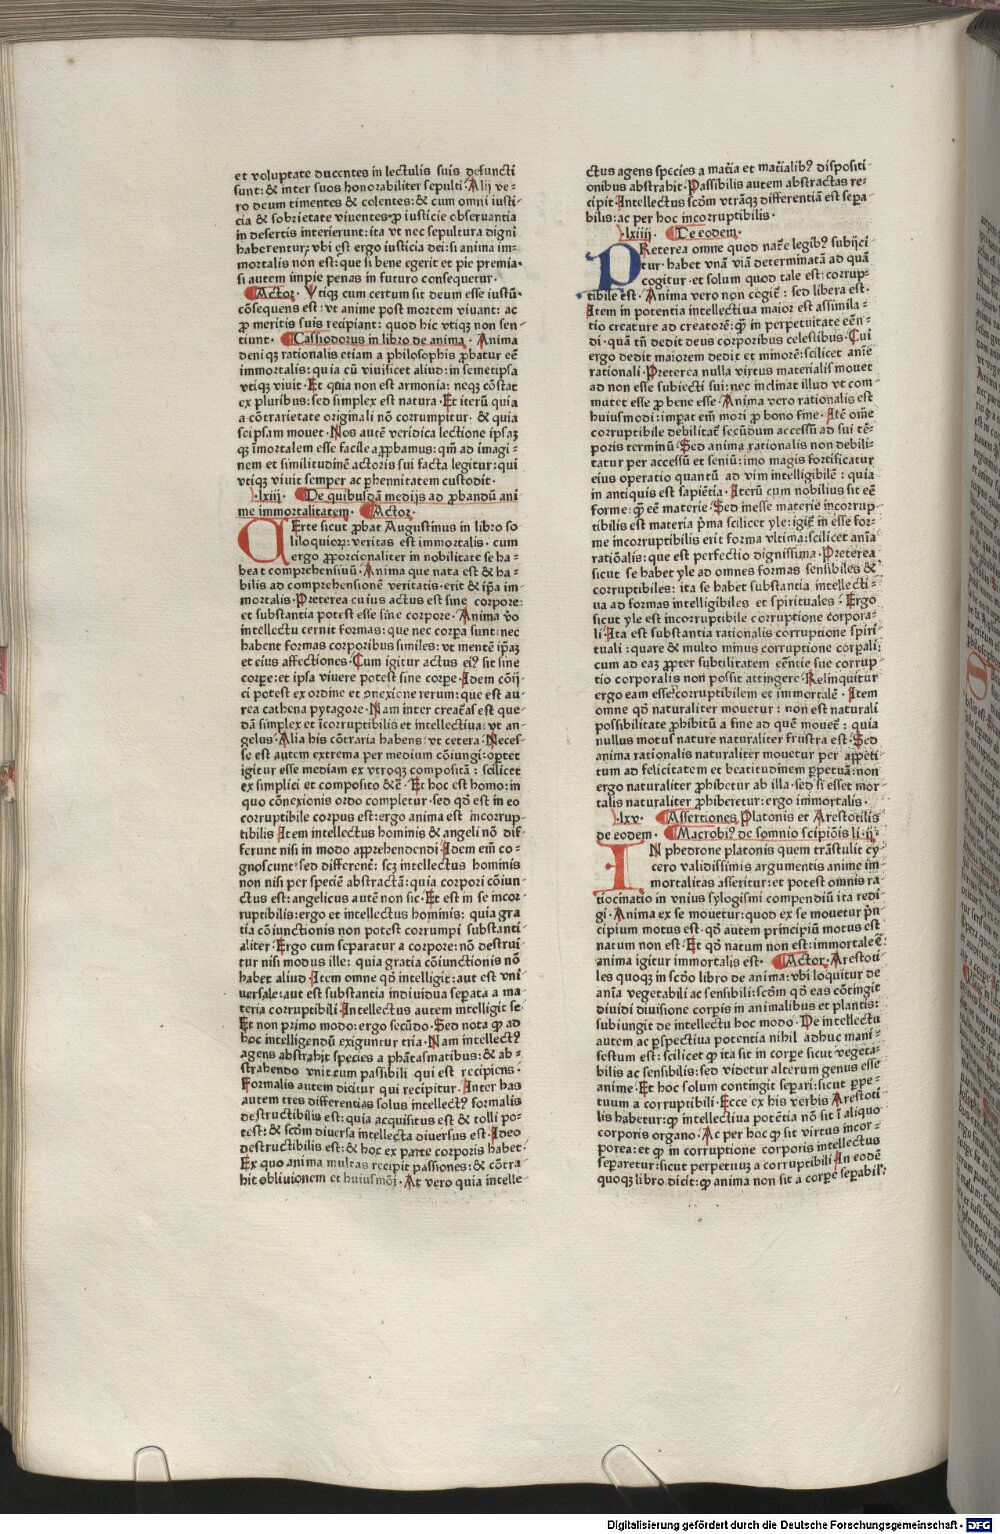 et voluptate ducentes in lectulis suis defuncti
sunt: & inter suos honorabiliter sepulti· Alij ve-
ro deum timentes & colentes: & cum omni iusti-
cia & sobrietate viuentes ꝓ iusticie obseruantia
in desertis interierunt: ita vt nec sepultura digni
haberentur; vbi est ergo iusticia dei: si anima im-
mortalis non est: que si bene egerit et pie premia·
si autem impie penas in futuro consequetur·
Actor· Vtiqꝫ cum certum sit deum esse iustū·
cōsequens est: vt anime post mortem viuant: ac
ꝓ meritis suis recipiant: quod hic vtiqꝫ non sen-
tiunt· Cassiodorus in libro de anima· Anima
deniqꝫ rationalis etiam a philosophis ꝓbatur eē
immortalis: quia cū viuificet aliud: in semetipsa
vtiqꝫ viuit· Et quia non est armonia: neqꝫ cōstat
ex pluribus: sed simplex est natura· Et iterū quia
a cōtrarietate originali nō corrumpitur· & quia
seipsam mouet· Nos autē veridica lectione ipsaꝫ
qꝫ īmortalem esse facile aꝓbamus: qm̄ ad imagi-
nem et similitudinē actoris sui facta legitur: qui
vtiqꝫ viuit semper ac perhennitatem custodit·
·lxiij· De quibusdā medijs ad ꝓbandū ani
me immortalitatem· Actor·
CErte sicut ꝓbat Augustinus in libro so
liloquioꝝ: veritas est immortalis· cum
ergo ꝓporcionaliter in nobilitate se ha-
beat comprehensiuū· Anima que nata est & ha-
bilis ad comprehensionē veritatis· erit & ip̄a im
mortalis· Preterea cuius actus est sine corpore:
et substantia potest esse sine corpore· Anima v̄o
intellectu cernit formas: que nec corꝑa sunt: nec
habent formas corporibus similes: vt mentē ip̄aꝫ
et eius affectiones· Cum igitur actus eiꝰ sit sine
corꝑe: et ipsa viuere potest sine corꝑe· Idem cōij-
ci potest ex ordine et ꝯnexione rerum: que est au-
rea cathena pytagore· Nam inter creatas est que-
dā simplex et īcorruptibilis et intellectiua: vt an-
gelus· Alia his cōtraria habens: vt cetera· Neces-
se est autem extrema per medium cōiungi: oꝑtet
igitur esse mediam ex vtroqꝫ compositā: scilicet
ex simplici et composito &cē· Et hoc est homo: in
quo cōnexionis ordo completur· sed qd̄ est in eo
corruptibile corpus est: ergo anima est incorrup-
tibilis· Item intellectus hominis & angeli nō dif-
ferunt nisi in modo apprehendendi· Idem em̄ co-
gnoscunt: sed different̄: scꝫ intellectus hominis
non nisi per speciē abstractā: quia corpori cōiun-
ctus est: angelicus autē non sic· Et est in se incor-
ruptibilis: ergo et intellectus hominis: quia gra
tia cōiunctionis non potest corrumpi substanti-
aliter· Ergo cum separatur a corpore: nō destrui-
tur nisi modus ille: quia gratia cōiunctionis nō
habet aliud· Item omne qd̄ intelligit: aut est vni
uersale: aut est substantia indiuidua seꝑata a ma-
teria corruptibili· Intellectus autem intelligit se·
Et non primo modo: ergo secūdo· Sed nota ꝙ ad
hoc intelligendū exiguntur tria· Nam intellectꝰ
agens abstrahit species a phātasmatibus: & ab-
strahendo vnit cum passibili qui est recipiens·
Formalis autem dicitur qui recipitur· Inter has
autem tres differentias solus intellectꝰ formalis
destructibilis est: quia acquisitus est & tolli po-
test: & scd̄m diuersa intellecta diuersus est· Ideo
destructibilis est: & hoc ex parte corporis habet·
Ex quo anima multas recipit passiones: & cōtra-
hit obliuionem et huiusmōi· At vero quia intelle-
ctus agens species a mat̄ia et mat̄ialibꝰ dispositi-
onibus abstrahit· Passibilis autem abstractas re-
cipit· Intellectus scd̄m vtrāqꝫ differentiā est seꝑa
bilis: ac per hoc incorruptibilis·
·lxiiij· De eodem·
PReterea omne quod nat̄e legibꝰ subijci-
tur· habet vnā viā determinatā ad quā
cogitur· et solum quod tale est: corrup-
tibile est· Anima vero non cogit̄: sed libera est·
Item in potentia intellectiua maior est assimila-
tio creature ad creatorē: ꝙ in perpetuitate eēn-
di· quā tn̄ dedit deus corporibus celestibus· Cui
ergo dedit maiorem dedit et minorē: scilicet anīe
rationali· Preterea nulla virtus materialis mouet
ad non esse subiecti sui: nec inclinat illud vt com-
mutet esse ꝓ bene esse· Anima vero rationalis est
huiusmodi: imperat em̄ mori ꝓ bono fine· Itē om̄e
corruptibile debilitat̄ secūdum accessū ad sui tē-
poris terminū· Sed anima rationalis non debili-
tatur per accessū et seniū: imo magis fortificatur
eius operatio quantū ad vim intelligibilē: quia
in antiquis est sapiētia· Iterū cum nobilius sit eē
forme: ꝙ eē materie· Sed inesse materie incorrup-
tibilis est materia p̄ma scilicet yle: igit̄ in esse for-
me incorruptibilis erit forma vltima: scilicet anīa
ratiōalis: que est perfectio dignissima· Preterea
sicut se habet yle ad omnes formas sensibiles &
corruptibiles: ita se habet substantia intellecti-
ua ad formas intelligibiles et spirituales· Ergo
sicut yle est incorruptibile corruptione corpora-
li· Ita est substantia rationalis corruptione spiri-
tuali: quare & multo minus corruptione corꝑali:
cum ad eaꝫ ꝓpter subtilitatem eēntie sue corrup-
tio corporalis non possit attingere· Relinquitur
ergo eam esse icorruptibilem et immortalē· Item
omne qd̄ naturaliter mouetur: non est naturali
possibilitate ꝓhibitū a fine ad quē mouet̄: quia
nullus motus nature naturaliter frustra est· Sed
anima rationalis naturaliter mouetur per appeti
tum ad felicitatem et beatitudinem ꝑpetuā: non
ergo naturaliter ꝓhibetur ab illa· sed si esset mor-
talis naturaliter ꝓhiberetur: ergo immortalis·
·lxv· Assertiones Platonis et Arestotilis
de eodem· Macrobiꝰ de somnio scipiōis li· ij·
IN phedrone platonis quem trāstulit cy
cero validissimis argumentis anime im
mortalitas asseritur: et potest omnis ra
tiocinatio in vnius sylogismi compendiū ita redi
gi· Anima ex se mouetur: quod ex se mouetur p̄n-
cipium motus est· qd̄ autem principiū motus est
natum non est· Et qd̄ natum non est: immortale ē:
anima igitur immortalis est· Actor· Arestoti-
les quoqꝫ in scd̄o libro de anima: vbi loquitur de
anīa vegetabili ac sensibili: scd̄m qd̄ eas cōtingit
diuidi diuisione corpis in animalibus et plantis:
subiungit de intellectu hoc modo· De intellectu
autem ac ꝑspectiua potentia nihil adhuc mani-
festum est: scilicet ꝙ ita sit in corꝑe sicut vegeta-
bilis ac sensibilis: sed videtur alterum genus esse
anime· Et hoc solum contingit seꝑari: sicut ꝑpe-
tuum a corruptibili· Ecce ex his verbis Arestoti-
lis habetur: ꝙ intellectiua potētia nō sit ī aliquo
corporis organo· Ac per hoc ꝙ sit virtus incor-
porea: et ꝙ in corruptione corporis intellectus
separetur: sicut perpetuuꝫ a corruptibili· In eodē
quoqꝫ libro dicit: ꝙ anima non sit a corꝑe seꝑabil·
Digitalisierung gefördert durch die Deutsche Forschungsgemeinschaft - DFG